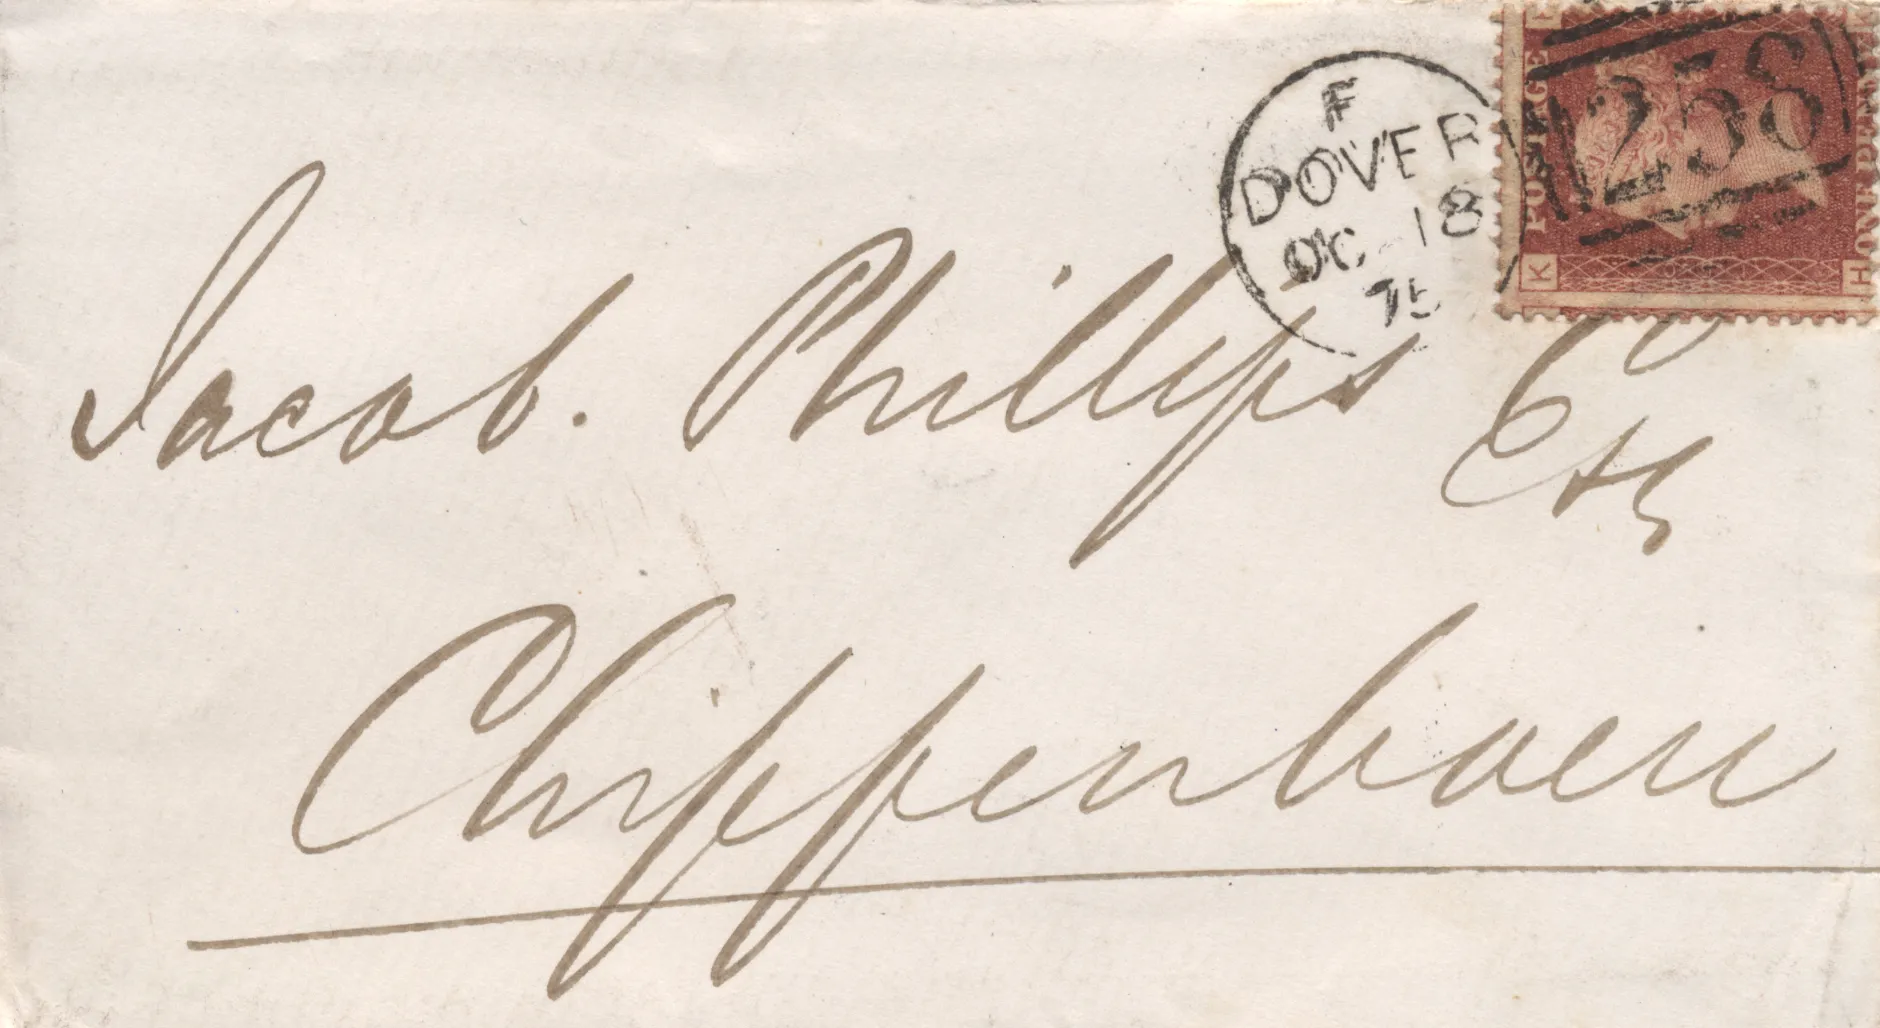 F
DOVER
OC 18
75
258
POSTAGE
ONE PENNY
K
H
Jacob. Phillips Esq
Chippenham